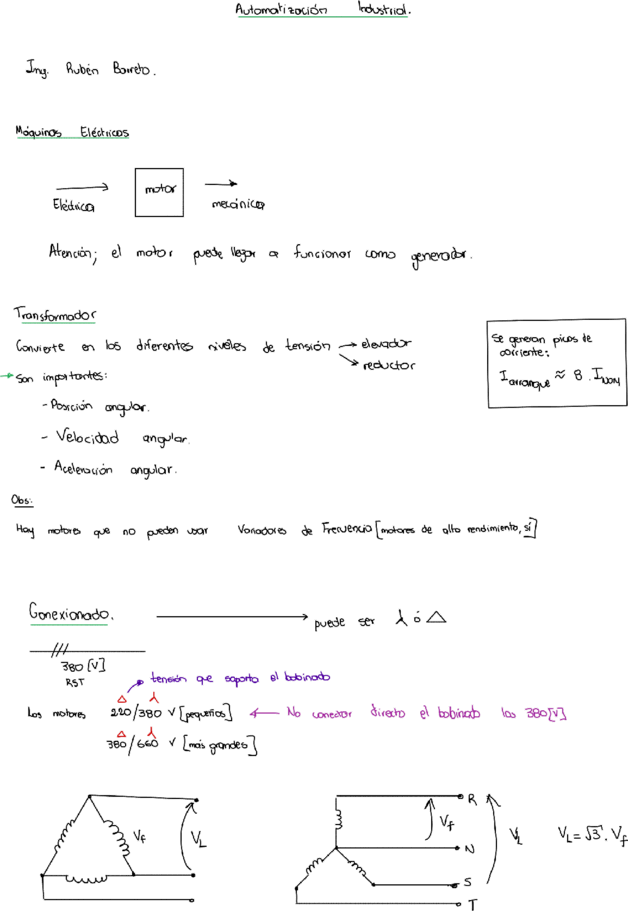 Automatización Industrial.
Ing. Rubén Barreto.
Máquinas Eléctricas
Eléctrica
motor
mecánica
Atención; el motor puede llegar a funcionar como generador.
Transformador
Convierte en los diferentes niveles de tensión → elevador
→ reductor
Se generan picos de
corriente:
I arranque ≈ 8 . I NOM
→ Son importantes:
- Posición angular.
- Velocidad angular.
- Aceleración angular.
Obs:
Hay motores que no pueden usar Variadores de Frecuencia [motores de alto rendimiento, sí]
Conexionado. → puede ser ⅄ ó △
380 [V]
RST
tensión que soporta el bobinado
△ ⅄
Los motores 220/380 V [pequeños] ← No conectar directo el bobinado las 380[V]
△ ⅄
380/660 V [más grandes]
Vf
VL
R
Vf
N
VL
S
T
VL = √3 . Vf